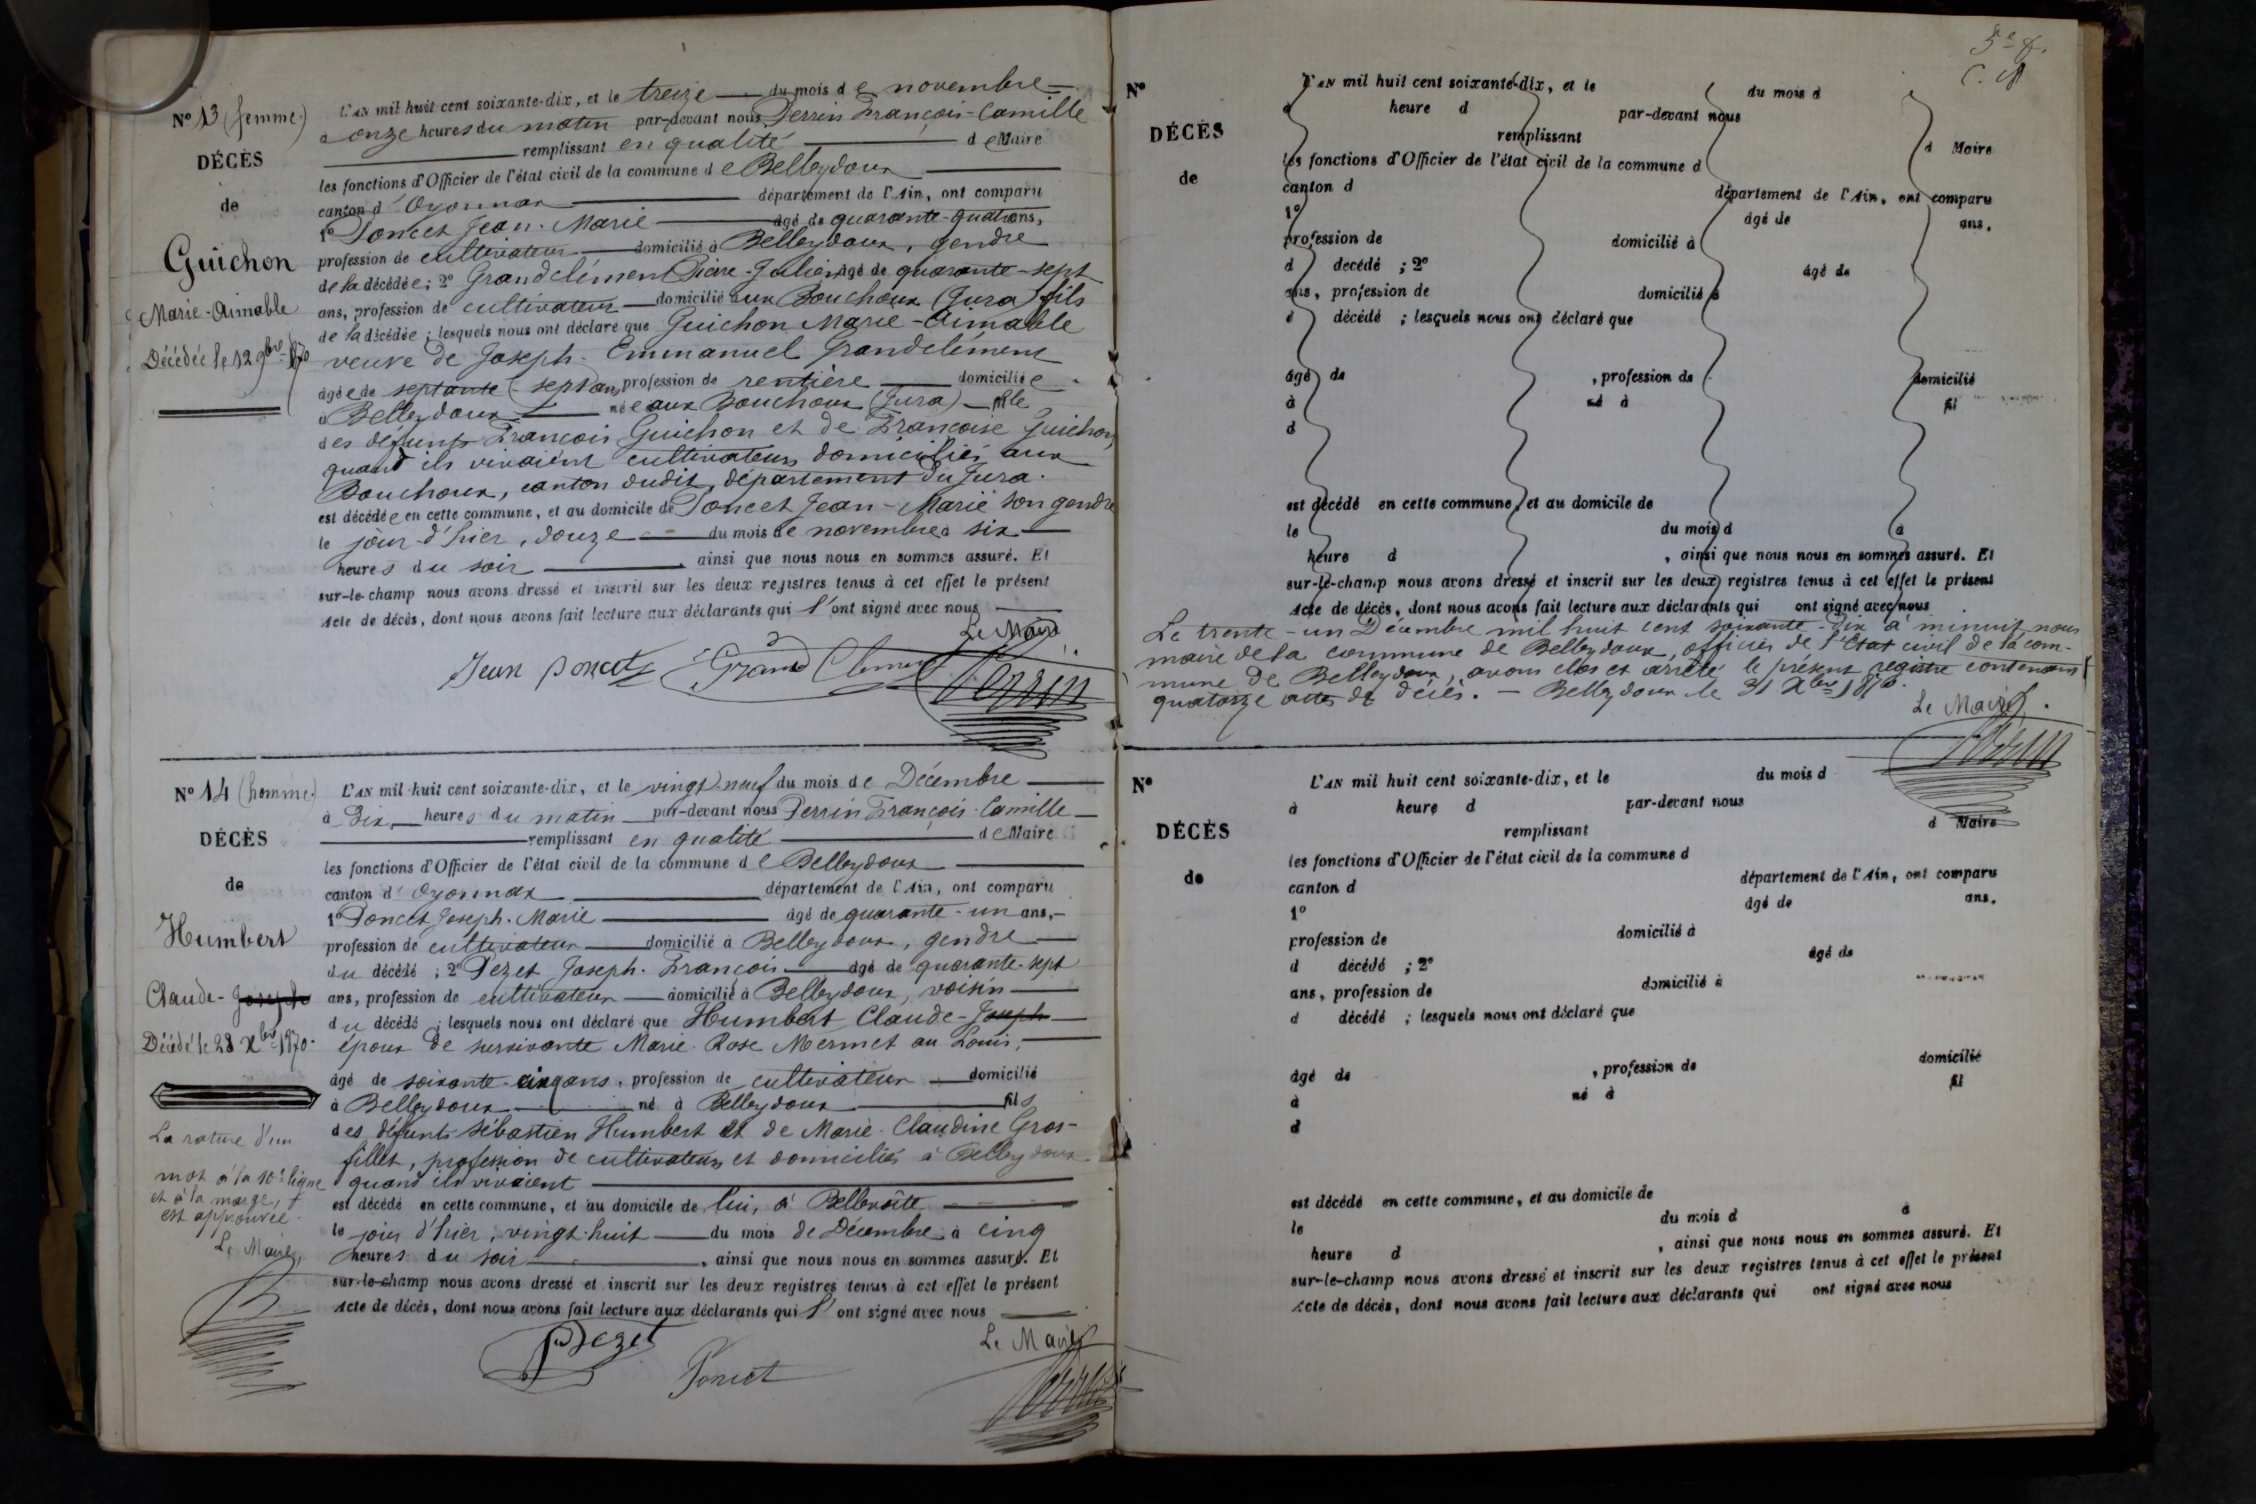 N° 13 (femme)
DÉCÈS
de
Guichon
Marie-Aimable
Décédée le 12 9bre 1870
L'AN mil huit cent soixante-dix, et le treize du mois de novembre
à onze heures du matin par-devant nous Perrin François-Camille
remplissant en qualité de Maire
les fonctions d'Officier de l'état civil de la commune de Belleydoux
canton d'Oyonnax département de l'Ain, ont comparu
1° Poncet Jean-Marie âgé de quarante-quatre ans,
profession de cultivateur domicilié à Belleydoux, gendre
de la décédée; 2° Grandclément Pierre-Julien âgé de quarante-sept
ans, profession de cultivateur domicilié aux Bouchoux (Jura) fils
de la décédée; lesquels nous ont déclaré que Guichon Marie-Aimable
veuve de Joseph-Emmanuel Grandclément
âgée de septante-sept ans, profession de rentière domiciliée
à Belleydoux née aux Bouchoux (Jura) fille
des défunts François Guichon et de Françoise Guichon,
quand ils vivaient cultivateurs domiciliés aux
Bouchoux, canton dudit, département du Jura.
est décédée en cette commune, et au domicile de Poncet Jean-Marie son gendre
le jour d'hier, douze du mois de novembre à six
heures du soir, ainsi que nous nous en sommes assuré. Et
sur-le-champ nous avons dressé et inscrit sur les deux registres tenus à cet effet le présent
Acte de décès, dont nous avons fait lecture aux déclarants qui l'ont signé avec nous
Le Maire
Jean Poncet Grand Clément Perrin
N° 14 (homme)
DÉCÈS
de
Humbert
Claude-Joseph
Décédé le 28 Xbre 1870.
La rature d'un
mot à la 10e ligne
et à la marge,
est approuvée.
Le Maire,
L'AN mil huit cent soixante-dix, et le vingt-neuf du mois de Décembre
à Dix heures du matin par-devant nous Perrin François-Camille
remplissant en qualité de Maire
les fonctions d'Officier de l'état civil de la commune de Belleydoux
canton d'Oyonnax département de l'Ain, ont comparu
1° Poncet Joseph-Marie âgé de quarante-un ans,
profession de cultivateur domicilié à Belleydoux, gendre
du décédé; 2° Pezet Joseph-François âgé de quarante-sept
ans, profession de cultivateur domicilié à Belleydoux, voisin
du décédé; lesquels nous ont déclaré que Humbert Claude-Joseph
époux de survivante Marie-Rose Mermet au Louis,
âgé de soixante-cinq ans, profession de cultivateur domicilié
à Belleydoux né à Belleydoux fils
des défunts Sébastien Humbert et de Marie-Claudine Gros-
fillet, profession de cultivateurs et domiciliés à Belleydoux
quand ils vivaient
est décédé en cette commune, et au domicile de lui, à Bellevoîte
le jour d'hier, vingt-huit du mois de Décembre à cinq
heures du soir, ainsi que nous nous en sommes assuré. Et
sur-le-champ nous avons dressé et inscrit sur les deux registres tenus à cet effet le présent
Acte de décès, dont nous avons fait lecture aux déclarants qui l'ont signé avec nous
Pezet Poncet
Le Maire
Perrin
N°
DÉCÈS
de
L'AN mil huit cent soixante-dix, et le du mois d
à heure d par-devant nous
remplissant d Maire
les fonctions d'Officier de l'état civil de la commune d
canton d département de l'Ain, ont comparu
1° âgé de ans,
profession de domicilié à
d décédé ; 2° âgé de
ans, profession de domicilié à
d décédé ; lesquels nous ont déclaré que
âgé de , profession de domicilié
à né à fil
d
est décédé en cette commune, et au domicile de
le du mois d à
heure d , ainsi que nous nous en sommes assuré. Et
sur-le-champ nous avons dressé et inscrit sur les deux registres tenus à cet effet le présent
Acte de décès, dont nous avons fait lecture aux déclarants qui ont signé avec nous
Le trente-un Décembre mil huit cent soixante-dix à minuit nous
maire de la commune de Belleydoux, officier de l'Etat civil de la com-
mune de Belleydoux, avons clos et arrêté le présent registre contenant
quatorze actes de décès. — Belleydoux le 31 Xbre 1870.
Le Maire
Perrin
N°
DÉCÈS
de
L'AN mil huit cent soixante-dix, et le du mois d
à heure d par-devant nous
remplissant d Maire
les fonctions d'Officier de l'état civil de la commune d
canton d département de l'Ain, ont comparu
1° âgé de ans,
profession de domicilié à
d décédé ; 2° âgé de
ans, profession de domicilié à
d décédé ; lesquels nous ont déclaré que
âgé de , profession de domicilié
à né à fil
d
est décédé en cette commune, et au domicile de
le du mois d à
heure d , ainsi que nous nous en sommes assuré. Et
sur-le-champ nous avons dressé et inscrit sur les deux registres tenus à cet effet le présent
Acte de décès, dont nous avons fait lecture aux déclarants qui ont signé avec nous